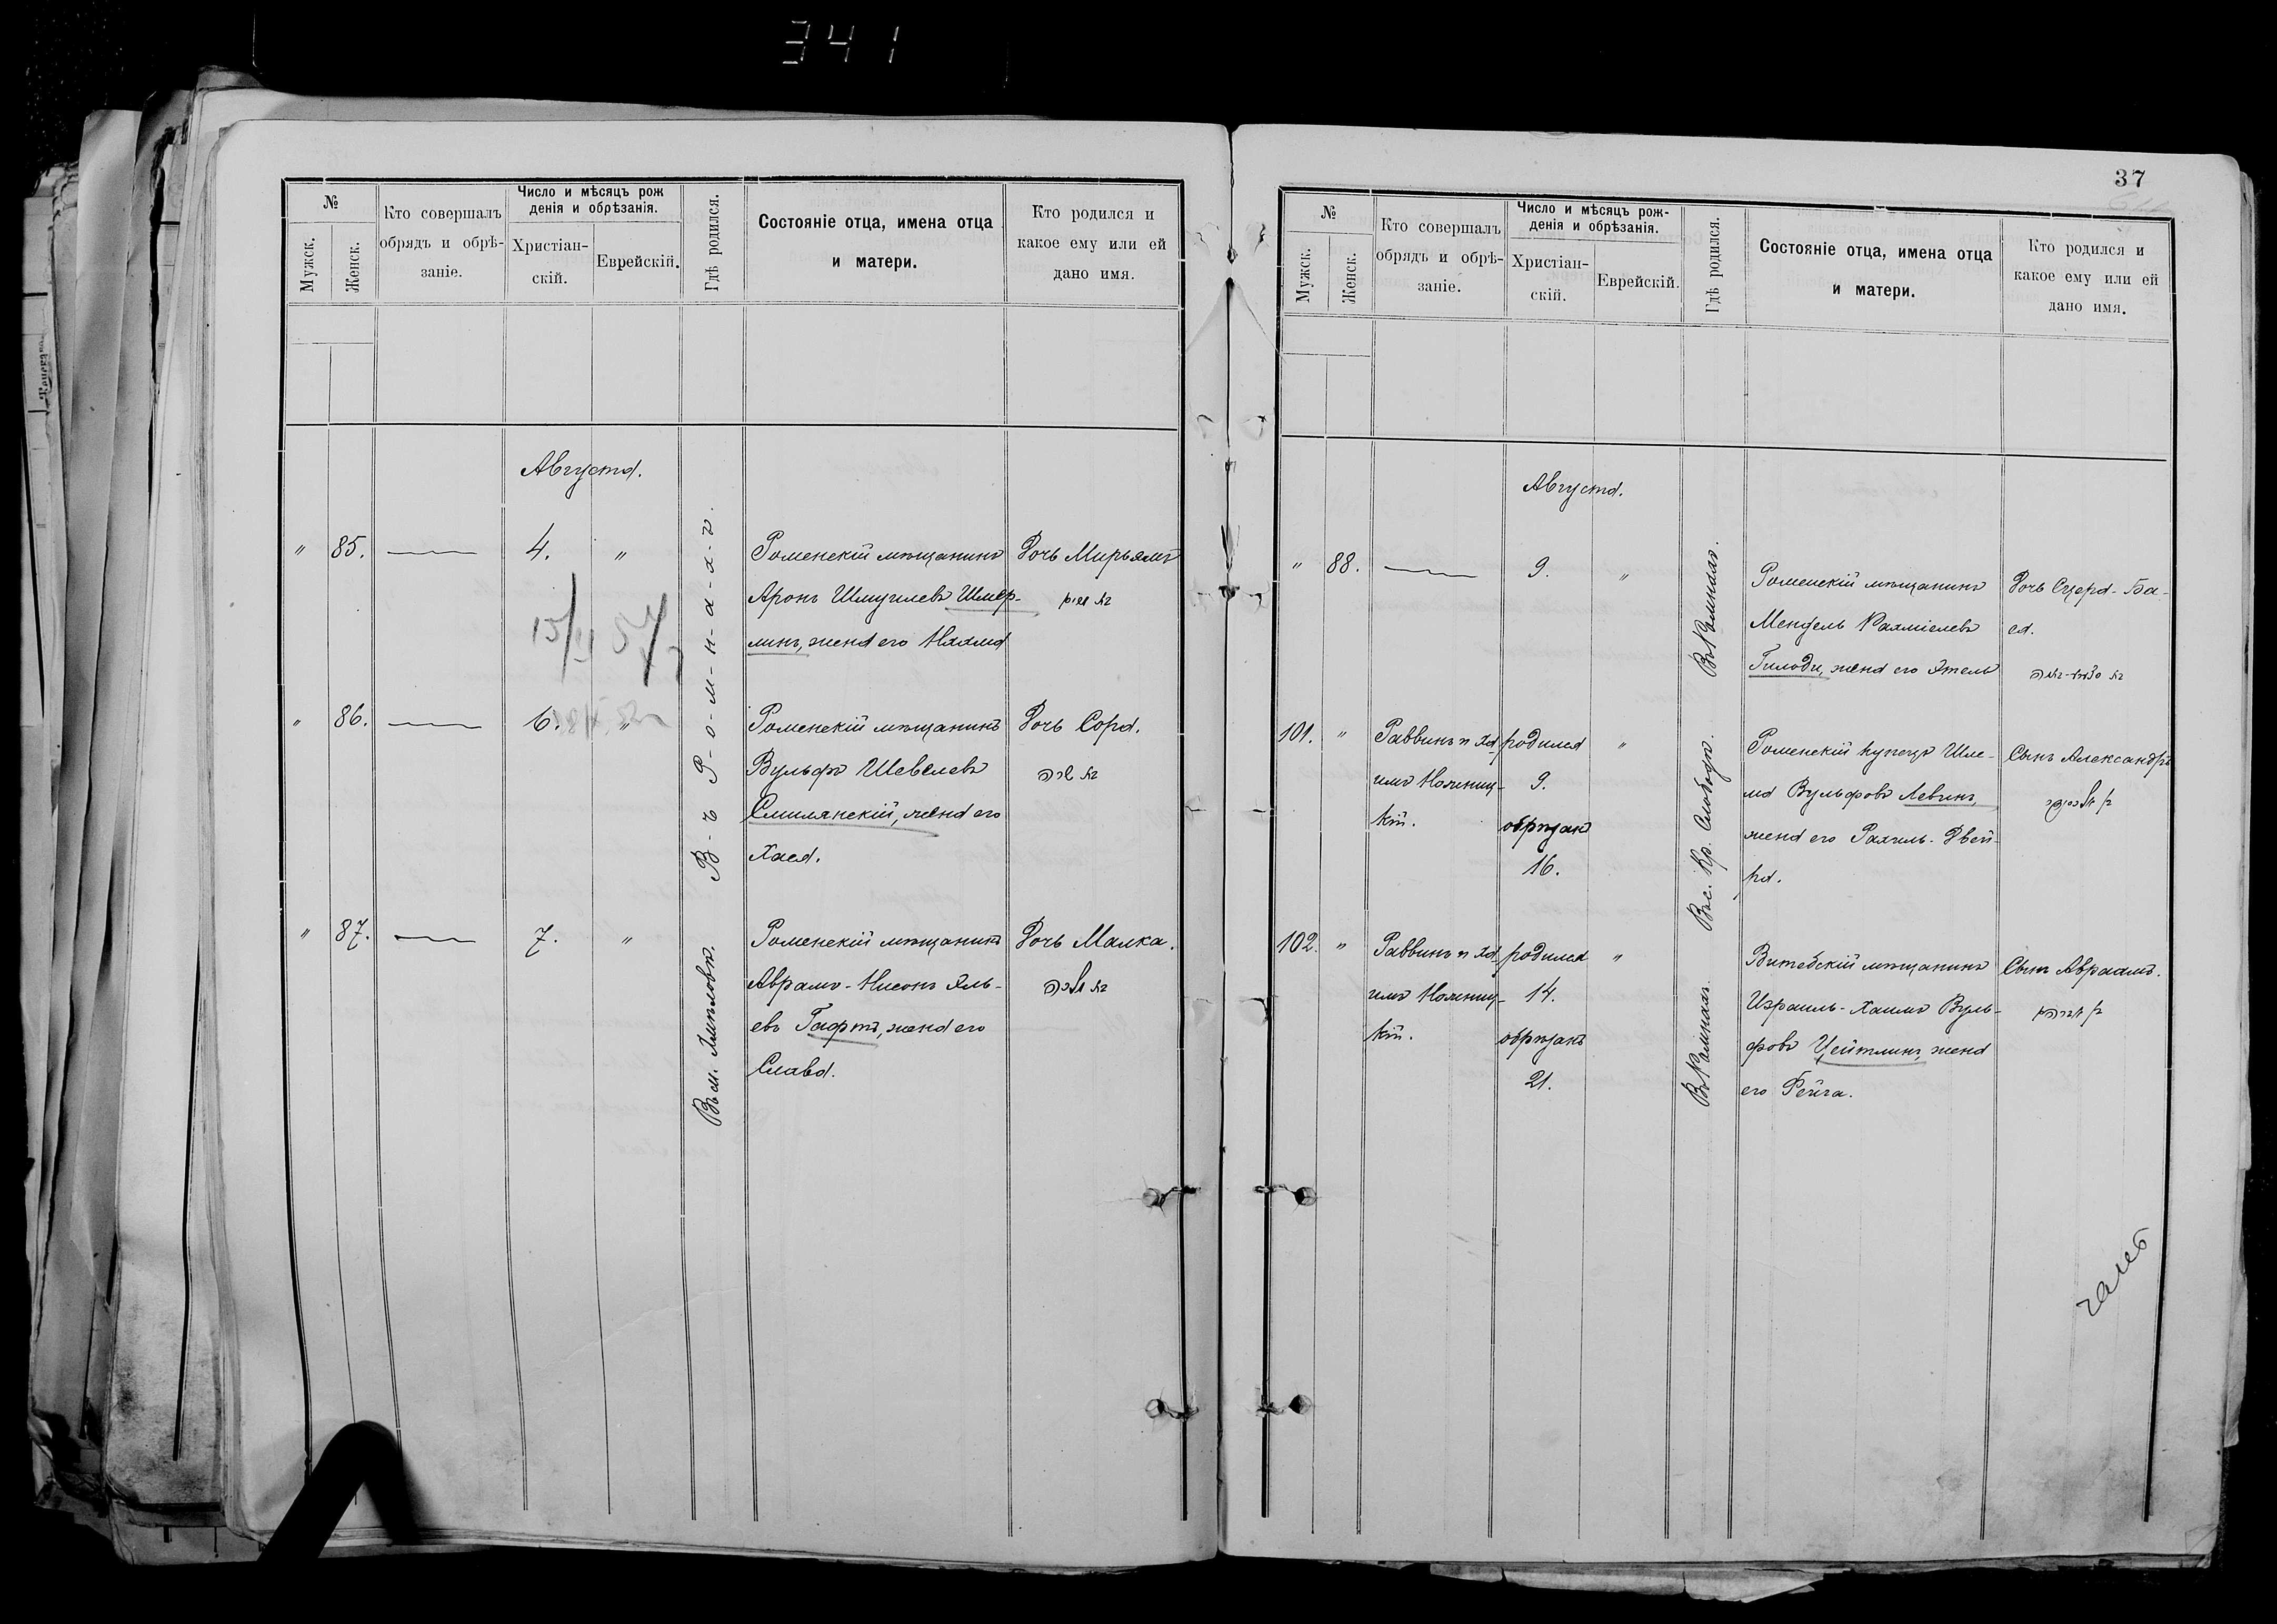 341
№
Мужск.
Женск.
Кто совершалъ
обрядъ и обрѣ-
заніе.
Число и мѣсяцъ рож
денія и обрѣзанія.
Христіан-
скій.
Еврейскій.
Гдѣ родился.
Состояніе отца, имена отца
и матери.
Кто родился и
какое ему или ей
дано имя.
Августа.
" 85. 4. "
В-ъ Р-о-м-н-а-х-ъ.
Роменскій мѣщанинъ
Аронъ Шмуилевъ Шмер-
линъ, жена его Нехама
Дочь Мирьямъ
בת מרים
15/II
" 86. 6. "
Роменскій мѣщанинъ
Вульфъ Шевелевъ
Смилянскій, жена его
Хася.
Дочь Сора.
בת שרה
" 87. 7. "
Въ м. Липовкѣ.
Роменскій мѣщанинъ
Аврамъ-Нисонъ
евъ Гафтъ, жена его
Славa.
Дочь Малка.
בת מלכה
37
№
Мужск.
Женск.
Кто совершалъ
обрядъ и обрѣ-
заніе.
Число и мѣсяцъ рож-
денія и обрѣзанія.
Христіан-
скій.
Еврейскій.
Гдѣ родился.
Состояніе отца, имена отца
и матери.
Кто родился и
какое ему или ей
дано имя.
Августа.
" 88. 9. "
Въ Ромнахъ.
Роменскій мѣщанинъ
Мендель Рахміелевъ
жена его Этель
Дочь -Ба-
ся.
101. "
Раввинъ и Ха-
имъ
кій.
родился
9.
обрѣзанъ
16.
"
Въ с. Кр. Слободѣ.
Роменскій купецъ Шле-
ма Вульфовъ Левинъ,
жена его Рахиль-Двей-
ра.
Сынъ Александръ
102. "
Раввинъ и Ха-
имъ
кій.
родился
14.
обрѣзанъ
21.
"
Въ Ромнахъ.
Витебскій мѣщанинъ
Израиль-Хаимъ Вуль-
фовъ Цейтлинъ, жена
его Рейза.
Сынъ Авраамъ.
בן אברהם